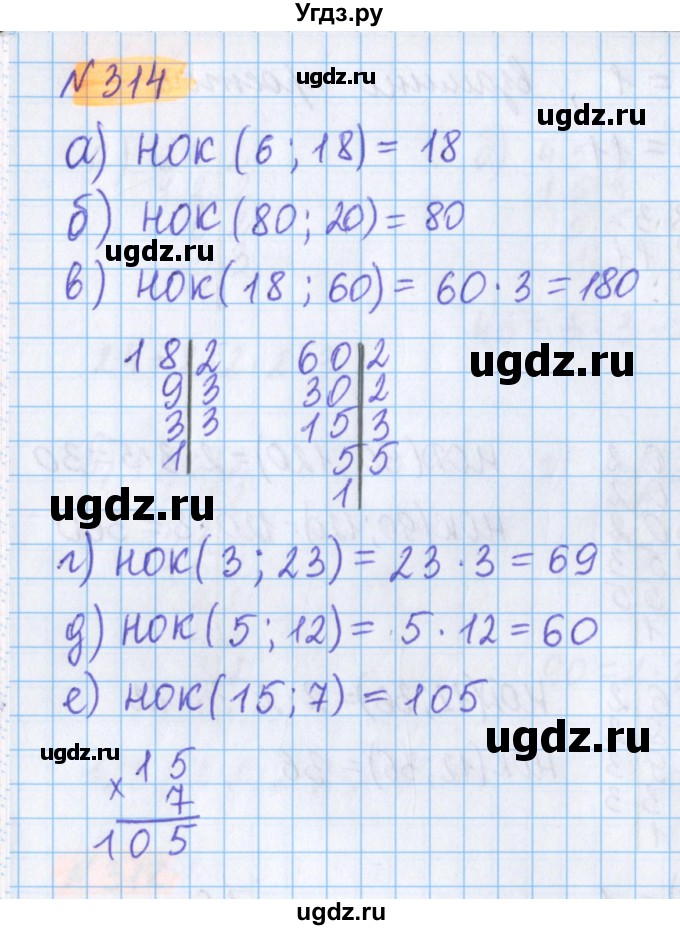 Угдз.ру
ugdz.ru
№314
а) нок (6 ; 18) = 18
б) нок (80 ; 20) = 80
ugdz.ru
в) нок (18 ; 60) = 60 · 3 = 180
18 | 2    60 | 2
9 | 3    30 | 2
3 | 3    15 | 3
1 |    5 | 5
1 |
ugdz.ru
ugdz.ru
г) нок (3 ; 23) = 23 · 3 = 69
д) нок (5 ; 12) = 5 · 12 = 60
е) нок (15 ; 7) = 105
ugdz.ru
ugdz.ru
15
× 7
105
ugdz.ru